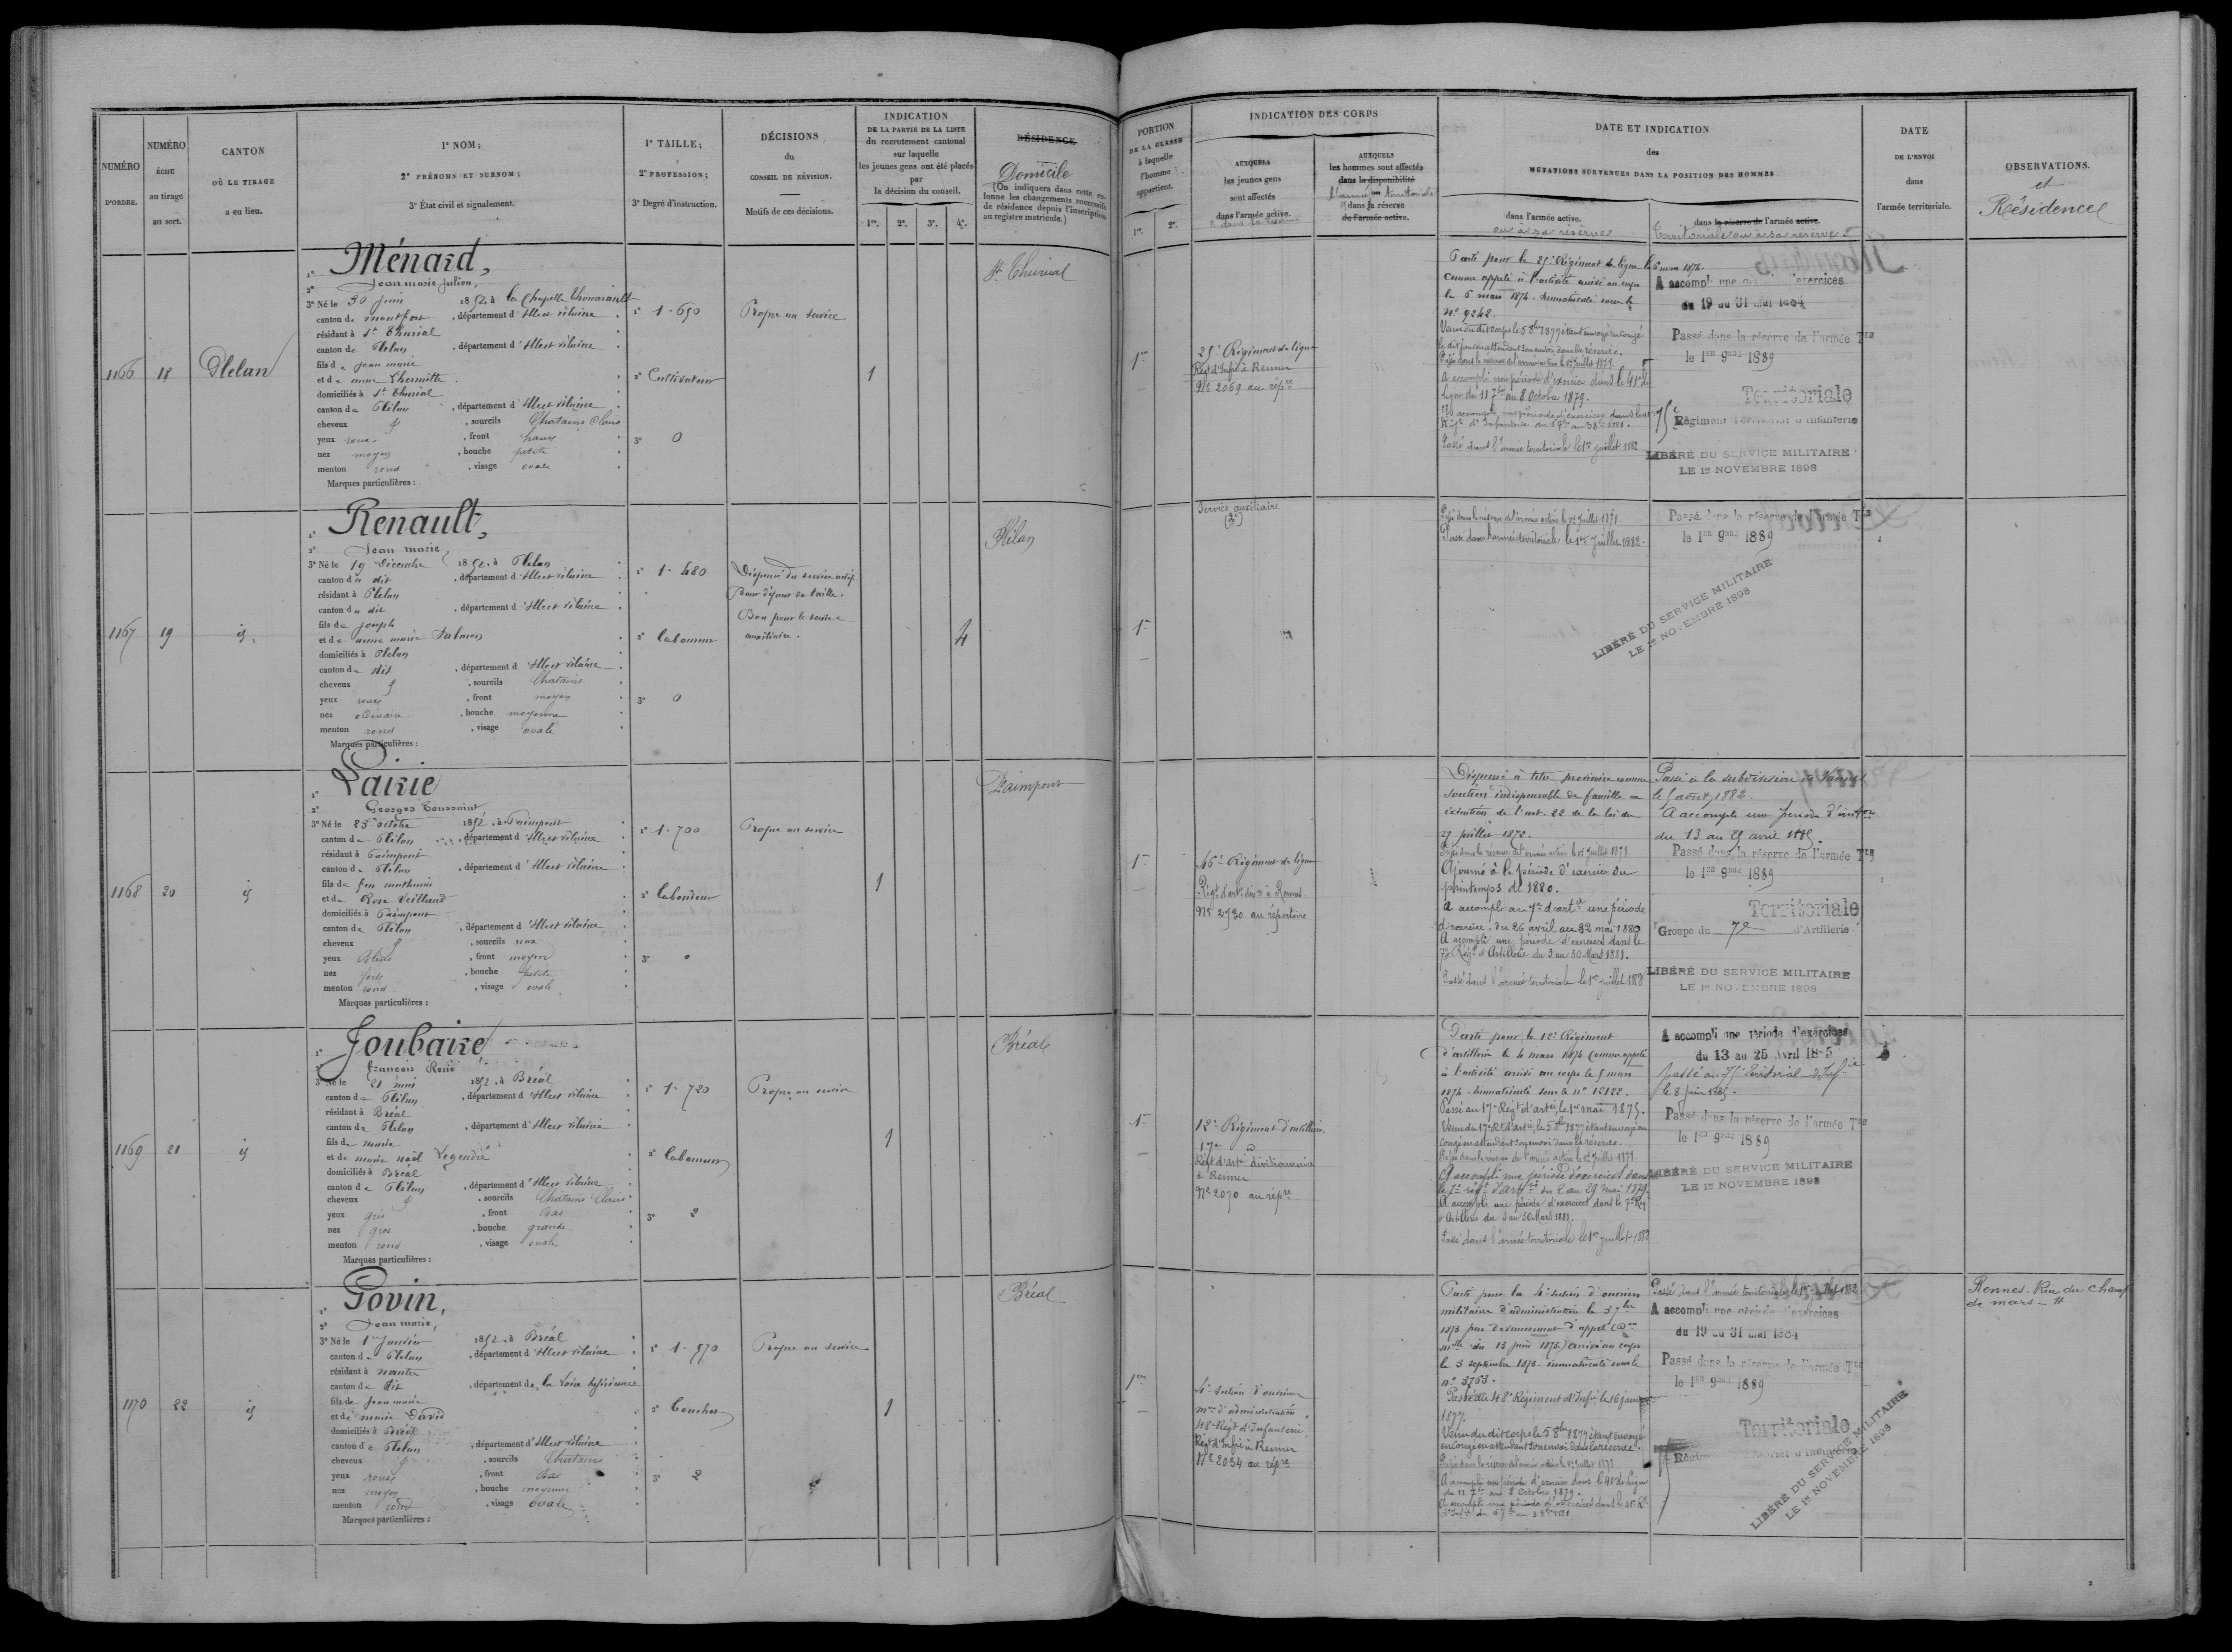 NUMÉRO
D'ORDRE.
NUMÉRO
ÉCHU
au tirage
au sort.
CANTON
OÙ LE TIRAGE
a eu lieu.
1º NOM;
2º PRÉNOMS ET SURNOM;
3º État civil et signalement.
1º TAILLE;
2º PROFESSION;
3º Degré d'instruction.
DÉCISIONS
du
CONSEIL DE RÉVISION.
Motifs de ces décisions.
INDICATION
DE LA PARTIE DE LA LISTE
du recrutement cantonal
sur laquelle
les jeunes gens ont été placés
par
la décision du conseil.
1re. 2e. 3e. 4e.
RÉSIDENCE
Domicile
(On indiquera dans cette colonne les changements successifs
de résidence depuis l'inscription
au registre matricule.)
PORTION
DE LA CLASSE
à laquelle
l'homme
appartient.
1re. 2e.
INDICATION DES CORPS
AUXQUELS
les jeunes gens
sont affectés
dans l'armée active.
AUXQUELS
les hommes sont affectés
dans la disponibilité
l'armée territoriale
dans la réserve
de l'armée active.
DATE ET INDICATION
des
MUTATIONS SURVENUES DANS LA POSITION DES HOMMES
dans l'armée active.
ou à sa réserve
dans la réserve de l'armée active.
territoriale ou à sa réserve.
DATE
DE L'ENVOI
dans
l'armée territoriale.
OBSERVATIONS.
et
Résidence
1166 18 Plélan
Ménard,
Jean marie Julien,
3º Né le 30 Juin 1852, à la Chapelle Thouarault
canton de montfort, département d'Ille et vilaine
résidant à St Thurial
canton de Plélan, département d'Ille et vilaine
fils de Jean marie
et de anne Lhermitte
domiciliés à St Thurial
canton de Plélan, département d'Ille et vilaine
cheveux, sourcils Chatains Clairs
yeux roux, front haut
nez moyen, bouche petite
menton rond, visage ovale
Marques particulières :
1º 1.650
2º Cultivateur
3º 0
Propre au service
1
St Thurial
1re
25e Régiment de ligne
Régt d'Infie à Rennes
No 2069 au répre
Parti pour le 25e Régiment de ligne le 6 mars 1874
comme appelé à l'activité arrivé au corps
le 6 mars 1874. Immatriculé sous le
no 9242.
Passé dans la réserve de l'armée active le 1er Juillet 1877
A accompli une période d'exercice dans le 41e de
ligne du 11 7bre au 8 Octobre 1879.
Passé dans l'armée territoriale le 1er juillet 1882
A accompli une période d'exercices
du 19 au 31 mai 1884
Passé dans la réserve de l'armée Tle
le 1er 9bre 1889
Territoriale
75e Régiment Territorial d'Infanterie
LIBÉRÉ DU SERVICE MILITAIRE
LE 1er NOVEMBRE 1898
1167 19 id.
Renault,
Jean marie,
3º Né le 19 Décembre 1852, à Plélan
canton du dit, département d'Ille et vilaine
résidant à Plélan
canton du dit, département d'Ille et vilaine
fils de joseph
et de anne marie Salmon
domiciliés à Plélan
canton de dit, département d'Ille et vilaine
cheveux, sourcils Chatains
yeux roux, front moyen
nez ordinaire, bouche moyenne
menton rond, visage ovale
Marques particulières :
1º 1.480
2º Laboureur
3º 0
Dispensé du service actif
Pour défaut de taille.
Bon pour le service
auxiliaire.
4
Plélan
1re
Service auxiliaire
Passé dans la réserve de l'armée active le 1er Juillet 1877
Passé dans l'armée territoriale le 1er Juillet 1882.
Passé dans la réserve de l'armée Tle
le 1er 9bre 1889
LIBÉRÉ DU SERVICE MILITAIRE
LE 1er NOVEMBRE 1898
1168 20 id
Lairie
Georges Toussaint
3º Né le 23 octobre 1852, à Paimpont
canton de Plélan, département d'Ille et vilaine
résidant à Paimpont
canton de Plélan, département d'Ille et vilaine
fils de feu mathurin
et de Rose Veillaud
domiciliés à Paimpont
canton de Plélan, département d'Ille et vilaine
cheveux, sourcils roux
yeux bleus, front moyen
nez fort, bouche petite
menton rond, visage ovale
Marques particulières :
1º 1.700
2º Laboureur
3º 0
Propre au service
1
Paimpont
1re
46e Régiment de ligne
Régt d'art. dive à Rennes
No 2730 au répertoire
Dispensé à titre provisoire comme
soutien indispensable de famille en
exécution de l'art. 22 de la loi du
27 juillet 1872.
Passé dans la réserve de l'armée active le 1er Juillet 1877
Ajourné à la période d'exercice du
printemps de 1880.
A accompli au 7e d'artie une période
d'exercice du 26 avril au 22 mai 1880
A accompli une période d'exercices dans le
7e Régt d'Artillerie du 3 au 30 Mars 1881.
Passé dans l'armée territoriale le 1er juillet 1882
Passé à la subdivision de Vannes
le 5 août 1882.
A accompli une période d'instron
du 13 au 25 avril 1885.
Passé dans la réserve de l'armée Tle
le 1er 9bre 1889
Territoriale
Groupe du 7e d'Artillerie
LIBÉRÉ DU SERVICE MILITAIRE
LE 1er NOVEMBRE 1898
1169 21 id
Joubaire
François René
3º Né le 21 mars 1852, à Bréal
canton de Plélan, département d'Ille et vilaine
résidant à Bréal
canton de Plélan, département d'Ille et vilaine
fils de marie
et de marie noël Legendre
domiciliés à Bréal
canton de Plélan, département d'Ille et vilaine
cheveux, sourcils Chatains Clairs
yeux gris, front bas
nez gros, bouche grande
menton rond, visage ovale
Marques particulières :
1º 1.720
2º Laboureur
3º 2
Propre au service
1
Bréal
1re
12e Régiment d'artillerie
17e d
Régt d'artie divisionnaire
à Rennes
No 2070 au répre
Parti pour le 12e Régiment
d'artillerie le 4 mars 1874 comme appelé
à l'activité arrivé au corps le 5 mars
1874. Immatriculé sous le no 12122.
Passé au 17e Régt d'artie le 1er mai 1875.
Venu du 17e Rt d'artie le 5 8bre 1877 étant envoyé en
congé en attendant son envoi dans la réserve.
Passé dans la réserve de l'armée active le 1er Juillet 1877
A accompli une période d'exercices dans
le 7e régt d'artie du 2 au 29 mai 1879.
A accompli une période d'exercices dans le 7e Rég
d'Artillerie du 3 au 30 Mars 1881.
Passé dans l'armée territoriale le 1er juillet 1882
A accompli une période d'exercices
du 13 au 25 Avril 1885
passé au 75e territorial d'Infie
le 8 juin 1885.
Passé dans la réserve de l'armée Tle
le 1er 9bre 1889
LIBÉRÉ DU SERVICE MILITAIRE
LE 1er NOVEMBRE 1898
1170 22 id
Govin,
Jean marie,
3º Né le 1er Janvier 1852, à Bréal
canton de Plélan, département d'Ille et vilaine
résidant à nantes
canton de dit, département de la Loire Inférieure
fils de Jean marie
et de marie David
domiciliés à Bréal
canton de Plélan, département d'Ille et vilaine
cheveux, sourcils Chatains
yeux roux, front bas
nez moyen, bouche moyenne
menton rond, visage ovale
Marques particulières :
1º 1.570
2º Boucher
3º 2
Propre au service
1
Bréal
1re
4e Section d'ouvriers
mres d'administration
48e Régt d'Infanterie
Régt d'Infie à Rennes
No 2054 au répre
Parti pour la 4e Section d'ouvriers
militaires d'administration le 3 7bre
1873 par devancement d'appel
du 13 juin 1873) arrivé au corps
le 3 septembre 1873. immatriculé sous le
no 3763.
Passé au 48e Régiment d'Infie le 16 janvier
1877.
Venu du dit corps le 5 8bre 1877 étant envoyé
en congé en attendant son envoi dans la réserve.
Passé dans la réserve de l'armée active le 1er Juillet 1877
A accompli une période d'exercice dans le 41e de ligne
du 11 7bre au 8 Octobre 1879.
A accompli une période d'exercices dans le 41e Rt
Passé dans l'armée territoriale le 1er juillet 1882
A accompli une période d'exercices
du 19 au 31 mai 1884
Passé dans la réserve de l'armée Tle
le 1er 9bre 1889
Territoriale
LIBÉRÉ DU SERVICE MILITAIRE
LE 1er NOVEMBRE 1898
Rennes. Rue du Champ
de mars